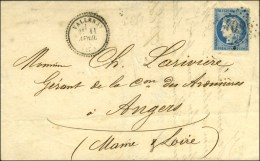 VALLERY
AVRIL
Monsieur Ch. Larivière
Gérant de la Con des Ardoisières
à
Angers
(Maine & Loire)